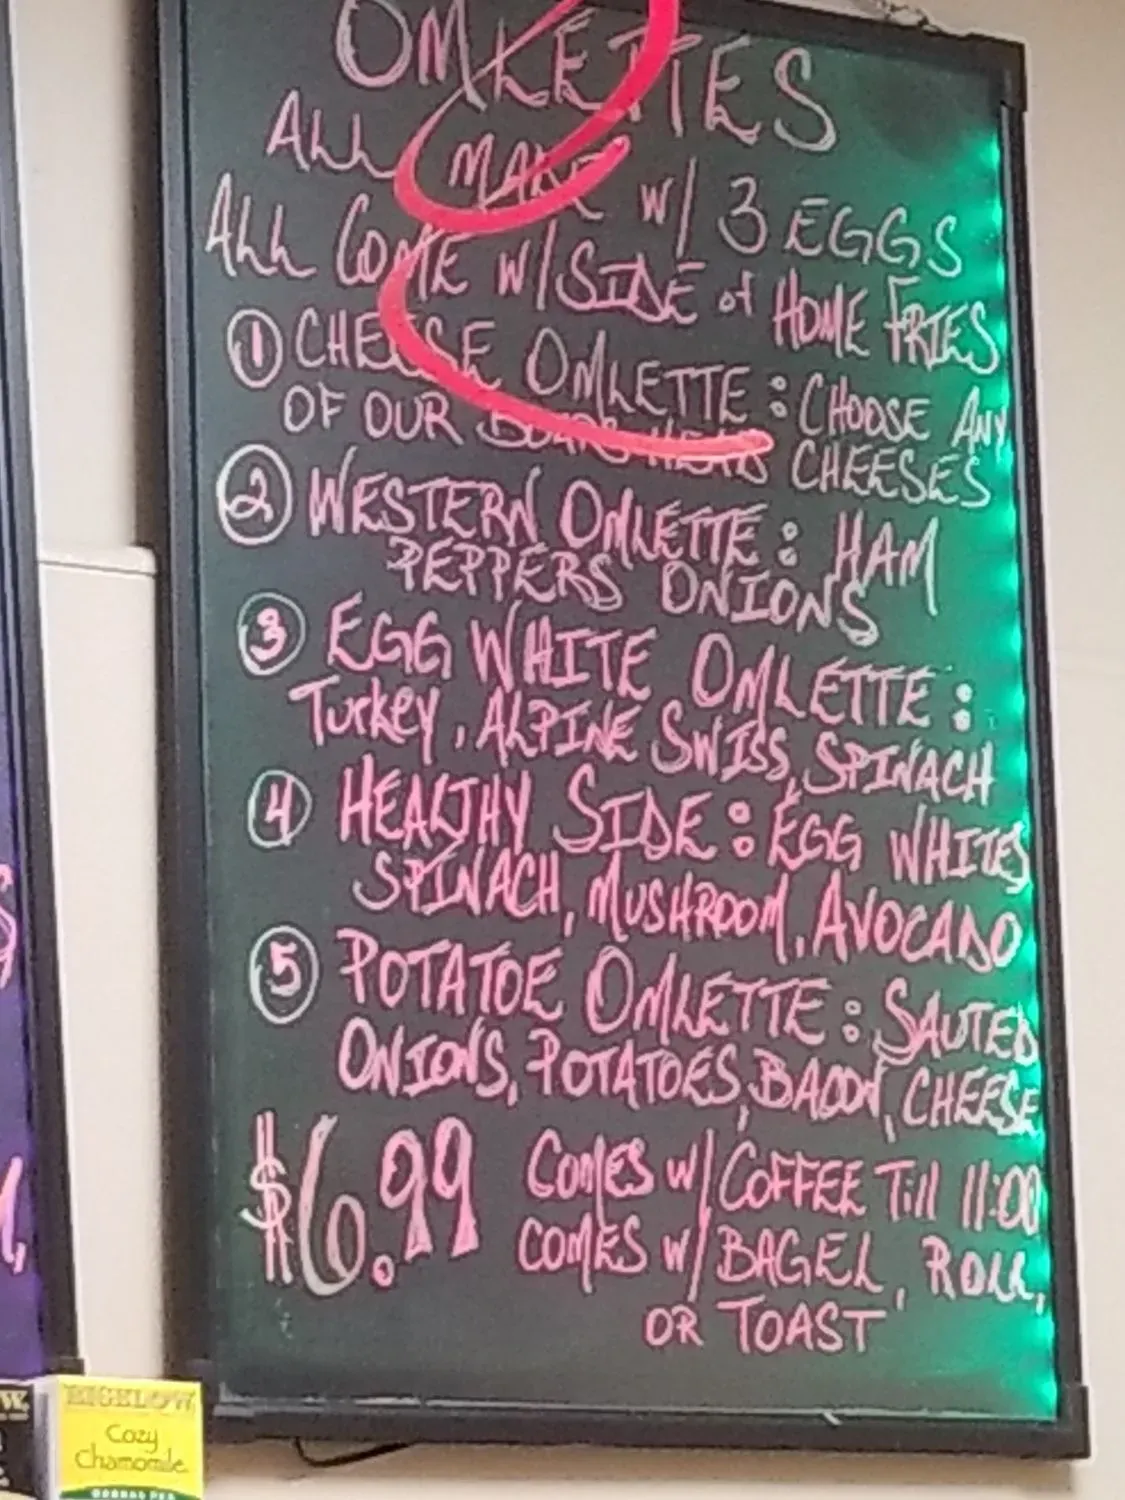 OMLETTES
ALL MADE W/ 3 EGGS
ALL COME W/SIDE of HOME FRIES
1 CHEESE OMLETTE : CHOOSE ANY
OF OUR BOARS HEAD CHEESES
2 WESTERN OMLETTE : HAM
PEPPERS ONIONS
3 EGG WHITE OMLETTE :
Turkey, ALPINE SWISS, SPINACH
4 HEALTHY SIDE : EGG WHITES
SPINACH, MUSHROOM, AVOCADO
5 POTATOE OMLETTE : SAUTED
ONIONS, POTATOES, BACON, CHEESE
$6.99 COMES W/ COFFEE Till 11:00
COMES W/ BAGEL, ROLL,
OR TOAST
BIGELOW
Cozy
Chamomile